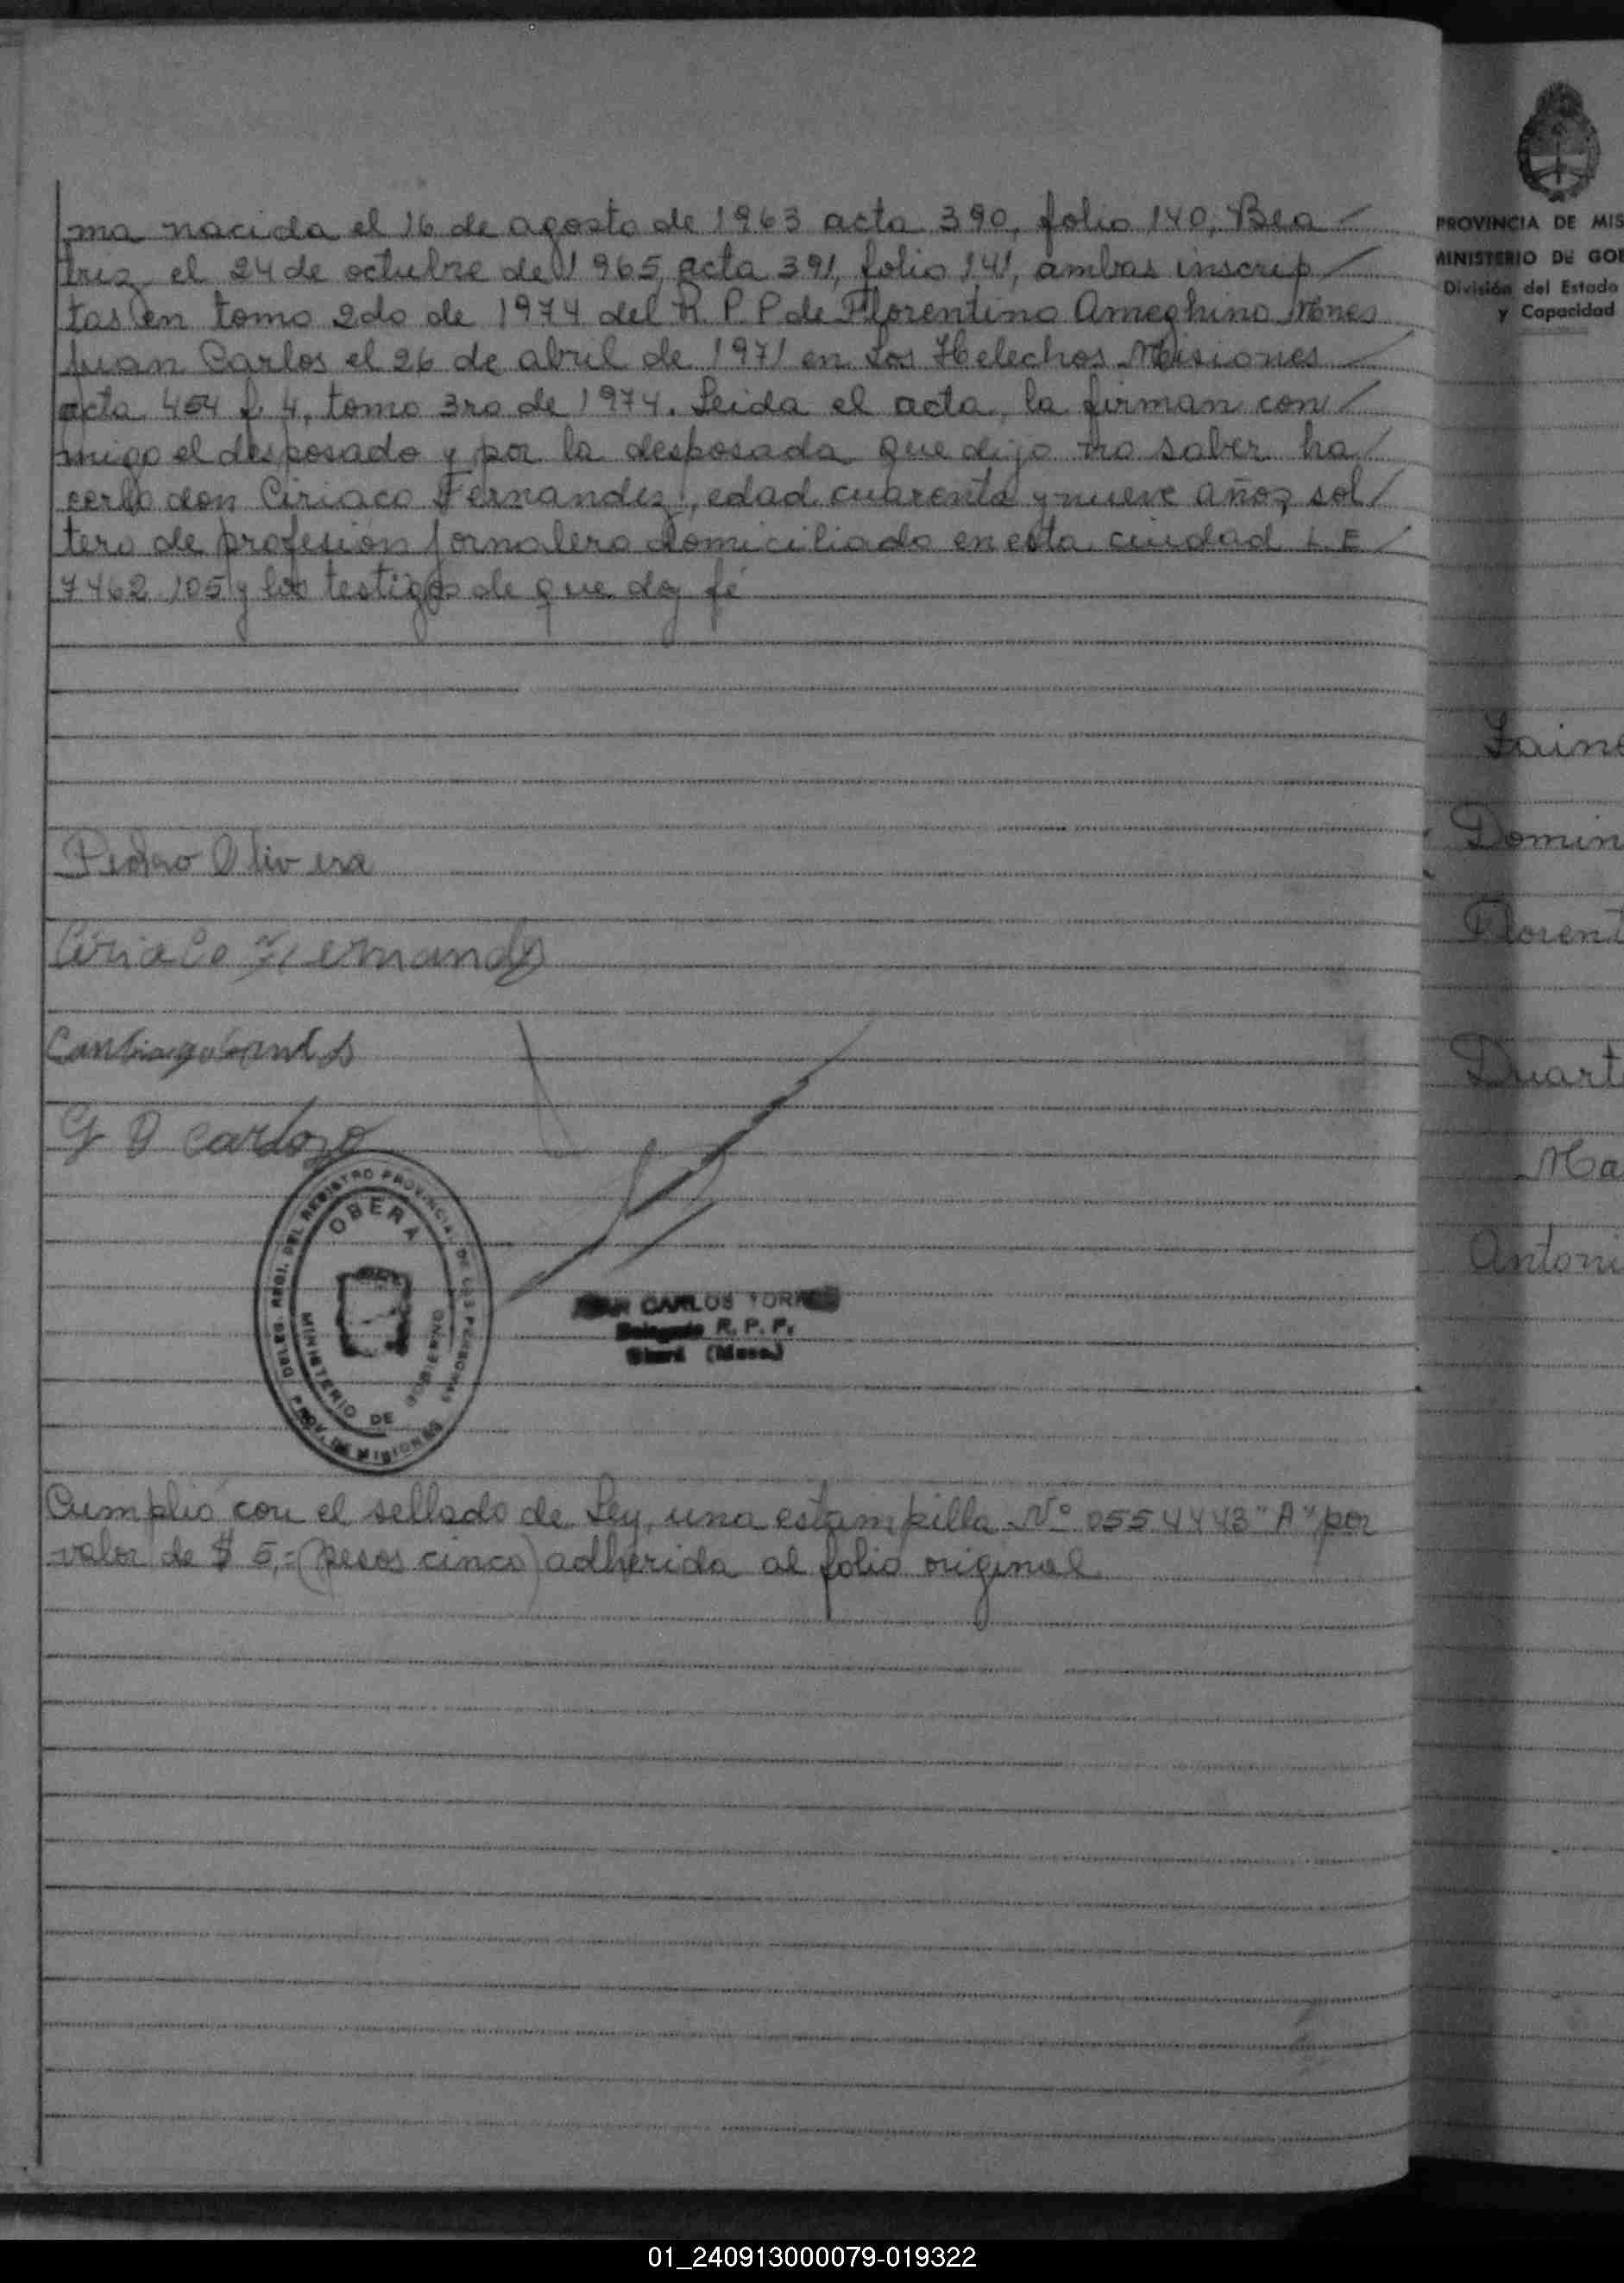 ma nacida el 16 de agosto de 1963 acta 390, folio 140, Bea /
triz el 24 de octubre de 1965, acta 391, folio 141, ambas inscrip /
tas en tomo 2do de 1974 del R.P.P de Florentino Ameghino Mnes
Juan Carlos el 26 de abril de 1971 en Los Helechos Misiones /
acta 404 f. 4, tomo 3ro de 1974. Leida el acta, la firman con /
migo el desposado y por la desposada que dijo no saber ha /
cerlo don Ciriaco Fernandez, edad cuarenta y nueve años, sol /
tero de profesión jornalero domiciliado en esta ciudad L.E /
7462.105 y los testigos de que doy fé
Pedro Olivera
Ciriaco Fernandz
G D Cardozo
DELEG. REGI. DEL REGISTRO PROVINCIAL DE LAS PERSONAS
OBERA
MINISTERIO DE GOBIERNO
PROV. DE MISIONES
CARLOS TORRES
Delegado R. P. P.
Oberá (Mnes.)
Cumplió con el sellado de Ley, una estampilla Nº 0554443 "A" por
valor de $ 5,= (pesos cinco) adherida al folio original
PROVINCIA DE MIS
MINISTERIO DE GOB
División del Estado
y Capacidad
Domin
Florent
Duart
Ma
Antoni
01_240913000079-019322